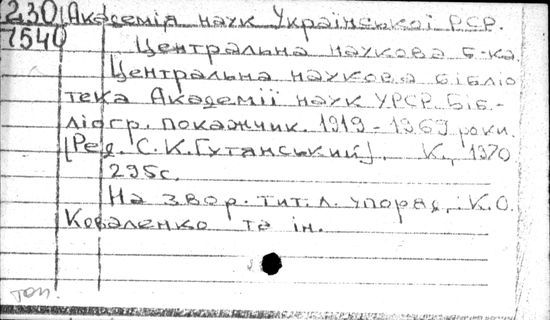 230 Академія наук Української РСР.
1540 Центральна наукова б-ка.
Центральна наукова бібліо
тека Академії наук УРСР. Біб-
ліогр. покажчик. 1919-1969 роки.
[Ред. С.К.Гутянський]. К., 1970
295с.
На звор. тит. л. упоряд. К.О.
Коваленко та ін.
топ.